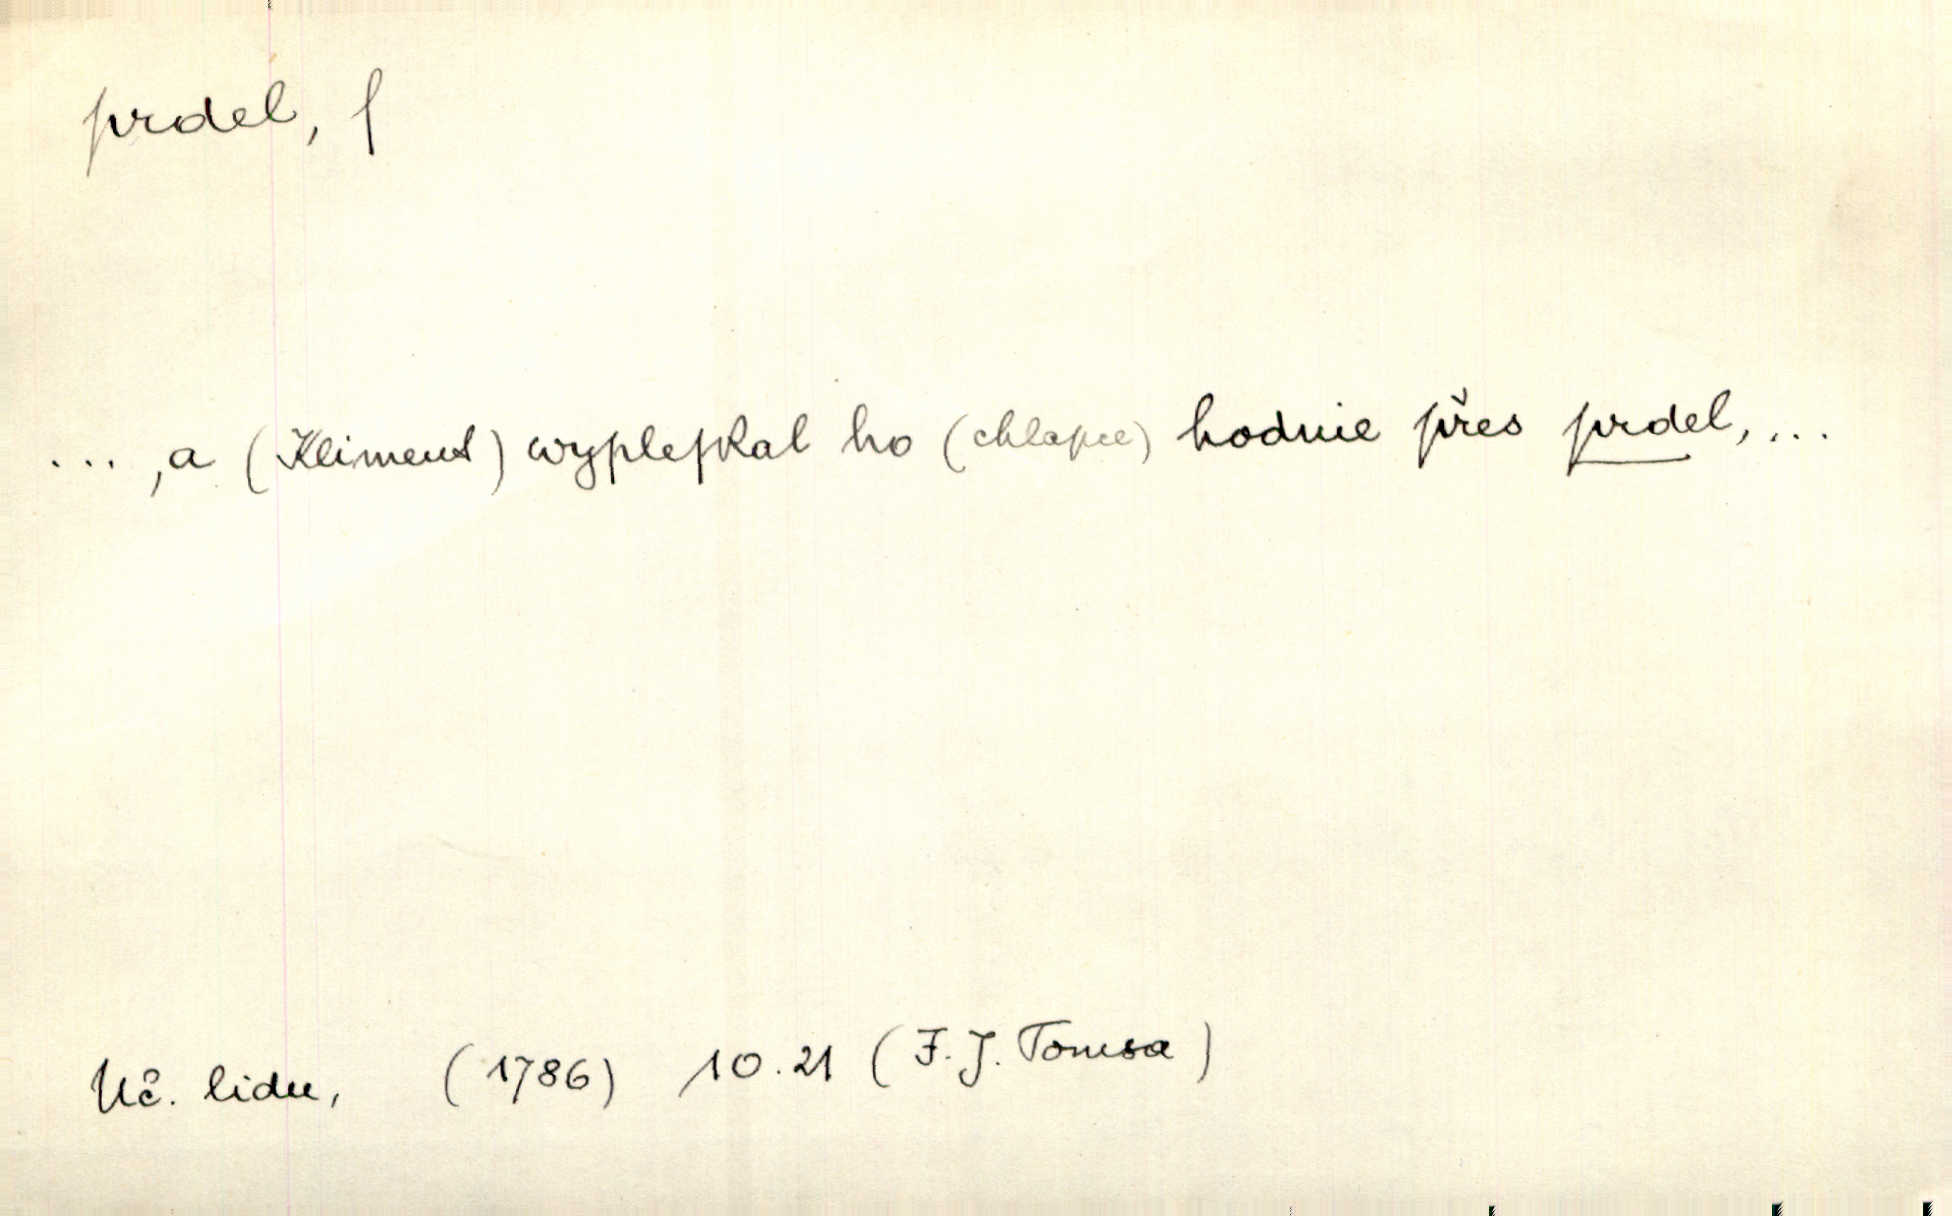 prdel, f
... , a (Kliment) wypleſkal ho (chlapce) hodnie přes prdel, ...
Uč. lidu, (1786) 10.21 (F. J. Tomsa)